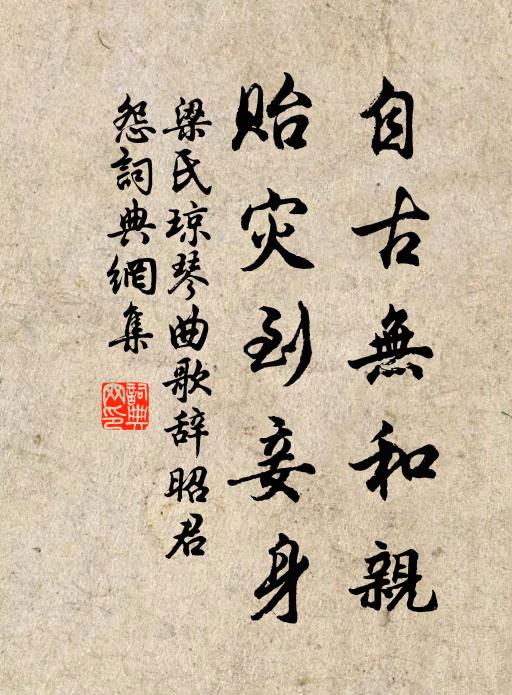 自古無和親
貽灾到妾身
梁氏琼琴曲歌辞昭君
怨詞典網集
詞典网印